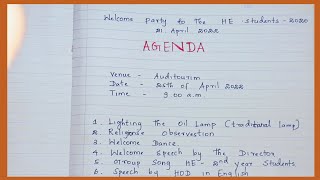 Welcome Party to The HE - students - 2020
21 April 2022
AGENDA
Venue - Auditourim
Date - 26th of April 2022
Time - 9.00 a.m
1. Lighting The Oil Lamp (traditural lamp)
2. Religose Observestion
3. Welcome Dance.
4. Welcome Speech by The Director
5. Group Song HE - 2nd year Students
6. Speech by HOD in English